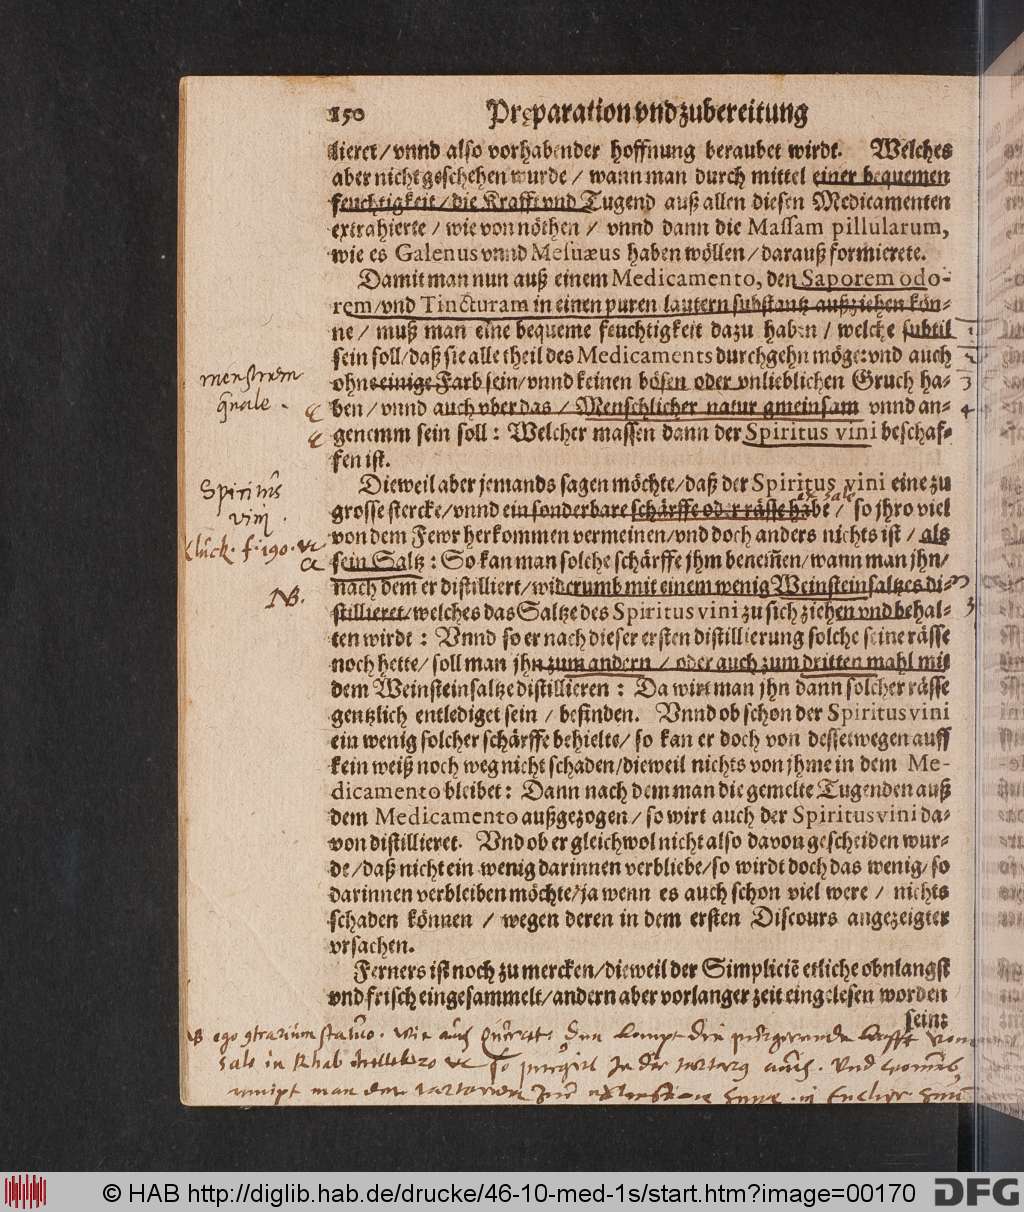 150 Pręparation vnd zubereitung
lieret / vnnd also vorhabender hoffnung beraubet wirdt. Welches
aber nicht geschehen wurde / wann man durch mittel einer bequemen
feuchtigkeit / die Krafft vnd Tugend auß allen diesen Medicamenten
extrahierte / wie von nöthen / vnnd dann die Massam pillularum,
wie es Galenus vnnd Mesuæus haben wöllen / darauß formierete.
Damit man nun auß einem Medicamento, den Saporem odo-
rem / vnd Tincturam in einen puren lautern substantz außziehen kön-
ne / muß man eine bequeme feuchtigkeit dazu haben / welche subtil 1
sein soll / daß sie alle theil des Medicaments durchgehn möge: vnd auch 2
ohne einige Farb sein / vnnd keinen bösen oder vnlieblichen Gruch ha- 3
menstruum
ben / vnnd auch vber das / Menschlicher natur gmeinsam vnnd an- 4
genemm sein soll: Welcher massen dann der Spiritus vini beschaf-
fen ist.
Dieweil aber jemands sagen möchte / daß der Spiritus vini eine zu
Spiritus
vini.
grosse stercke / vnnd ein sonderbare schärffe oder rässe habe / so jhro viel
von dem Fewr herkommen vermeinen / vnd doch anders nichts ist / als
f. 190.
sein Saltz: So kan man solche schärffe jhm benem̃en / wann man jhn /
nach dem er distilliert / widerumb mit einem wenig Weinsteinsaltzes di-
NB.
stillieret / welches das Saltze des Spiritus vini zu sich ziehen vnd behal- 3
ten wirdt: Vnnd so er nach dieser ersten distillierung solche seine rässe
noch hette / soll man jhn zum andern / oder auch zum dritten mahl mit
dem Weinsteinsaltze distillieren: Da wirt man jhn dann solcher rässe
gentzlich entlediget sein / befinden. Vnnd ob schon der Spiritus vini
ein wenig solcher schärffe behielte / so kan er doch von dessetwegen auff
kein weiß noch weg nicht schaden / dieweil nichts von jhme in dem Me-
dicamento bleibet: Dann nach dem man die gemelte Tugenden auß
dem Medicamento außgezogen / so wirt auch der Spiritus vini da-
von distillieret. Vnd ob er gleichwol nicht also davon gescheiden wur-
de / daß nicht ein wenig darinnen verbliebe / so wirdt doch das wenig / so
darinnen verbleiben möchte / ja wenn es auch schon viel were / nichts
schaden können / wegen deren in dem ersten Discours angezeigter
vrsachen.
Ferners ist noch zu mercken / dieweil der Simpliciẽ etliche obnlangst
vnd frisch eingesammelt / andern aber vor langer zeit eingelesen worden
sein:
© HAB http://diglib.hab.de/drucke/46-10-med-1s/start.htm?image=00170 DFG